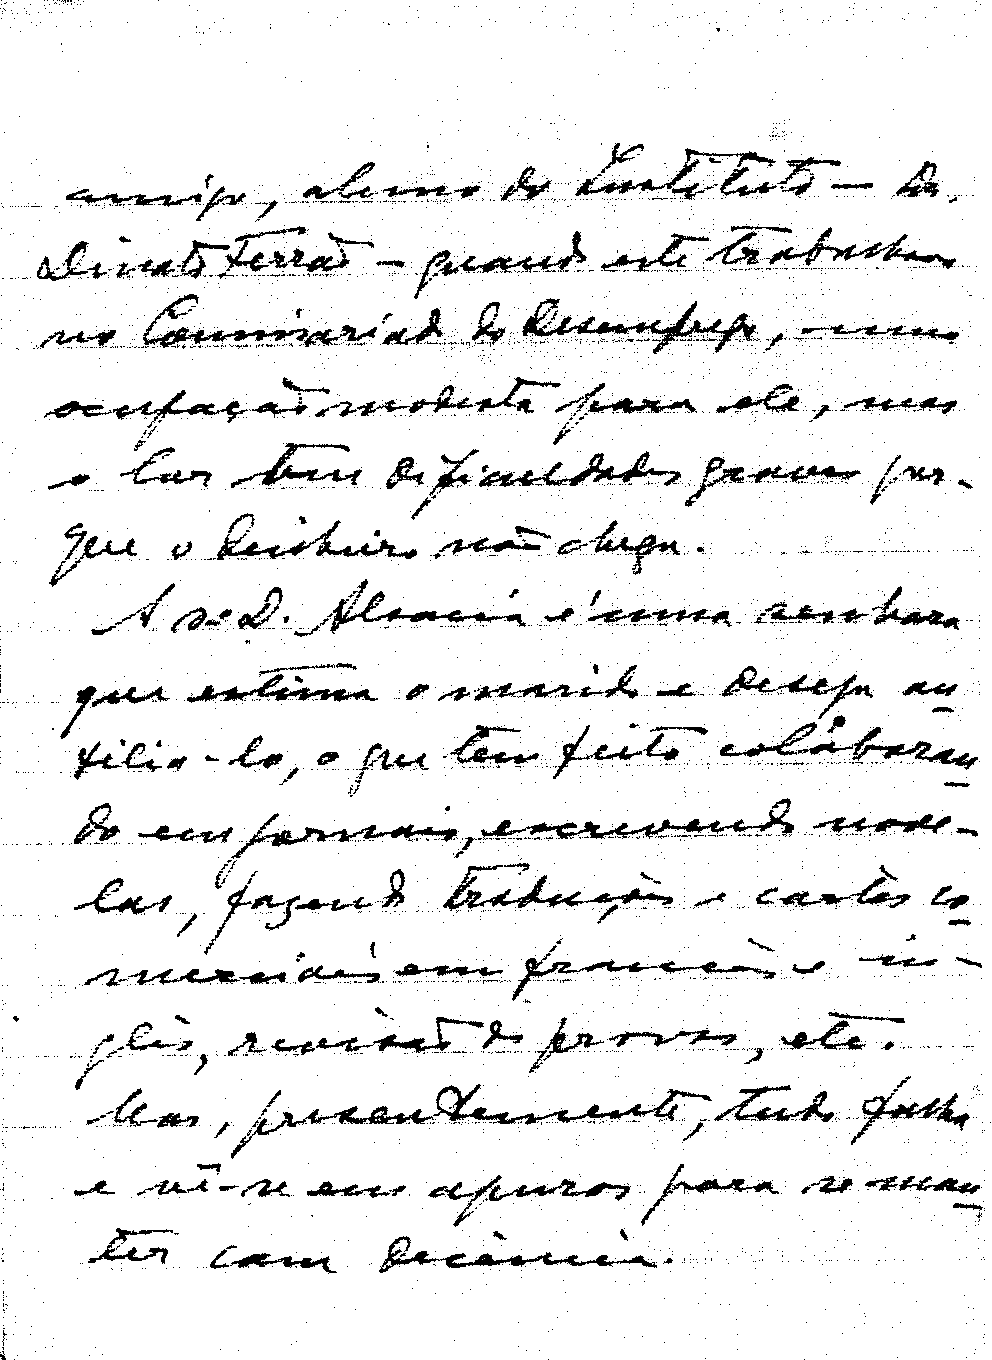 amigo, aluno do Instituto — Dr.
Ferrão — quando este trabalhava
no Comissariado do Desemprego, numa
ocupação modesta para ele, mas
o lar tem dificuldades graves por-
que o dinheiro não chega.
A sr.ª D. é uma senhora
que estima o marido e deseja au-
xilia-lo, o que tem feito colaboran-
do em jornais, escrevendo nove-
las, fazendo traduções e cartas co-
merciais em francês e in-
glês, revisão de provas, etc.
Mas, presentemente, tudo falha
e vê-se em apuros para se man-
ter com decência.